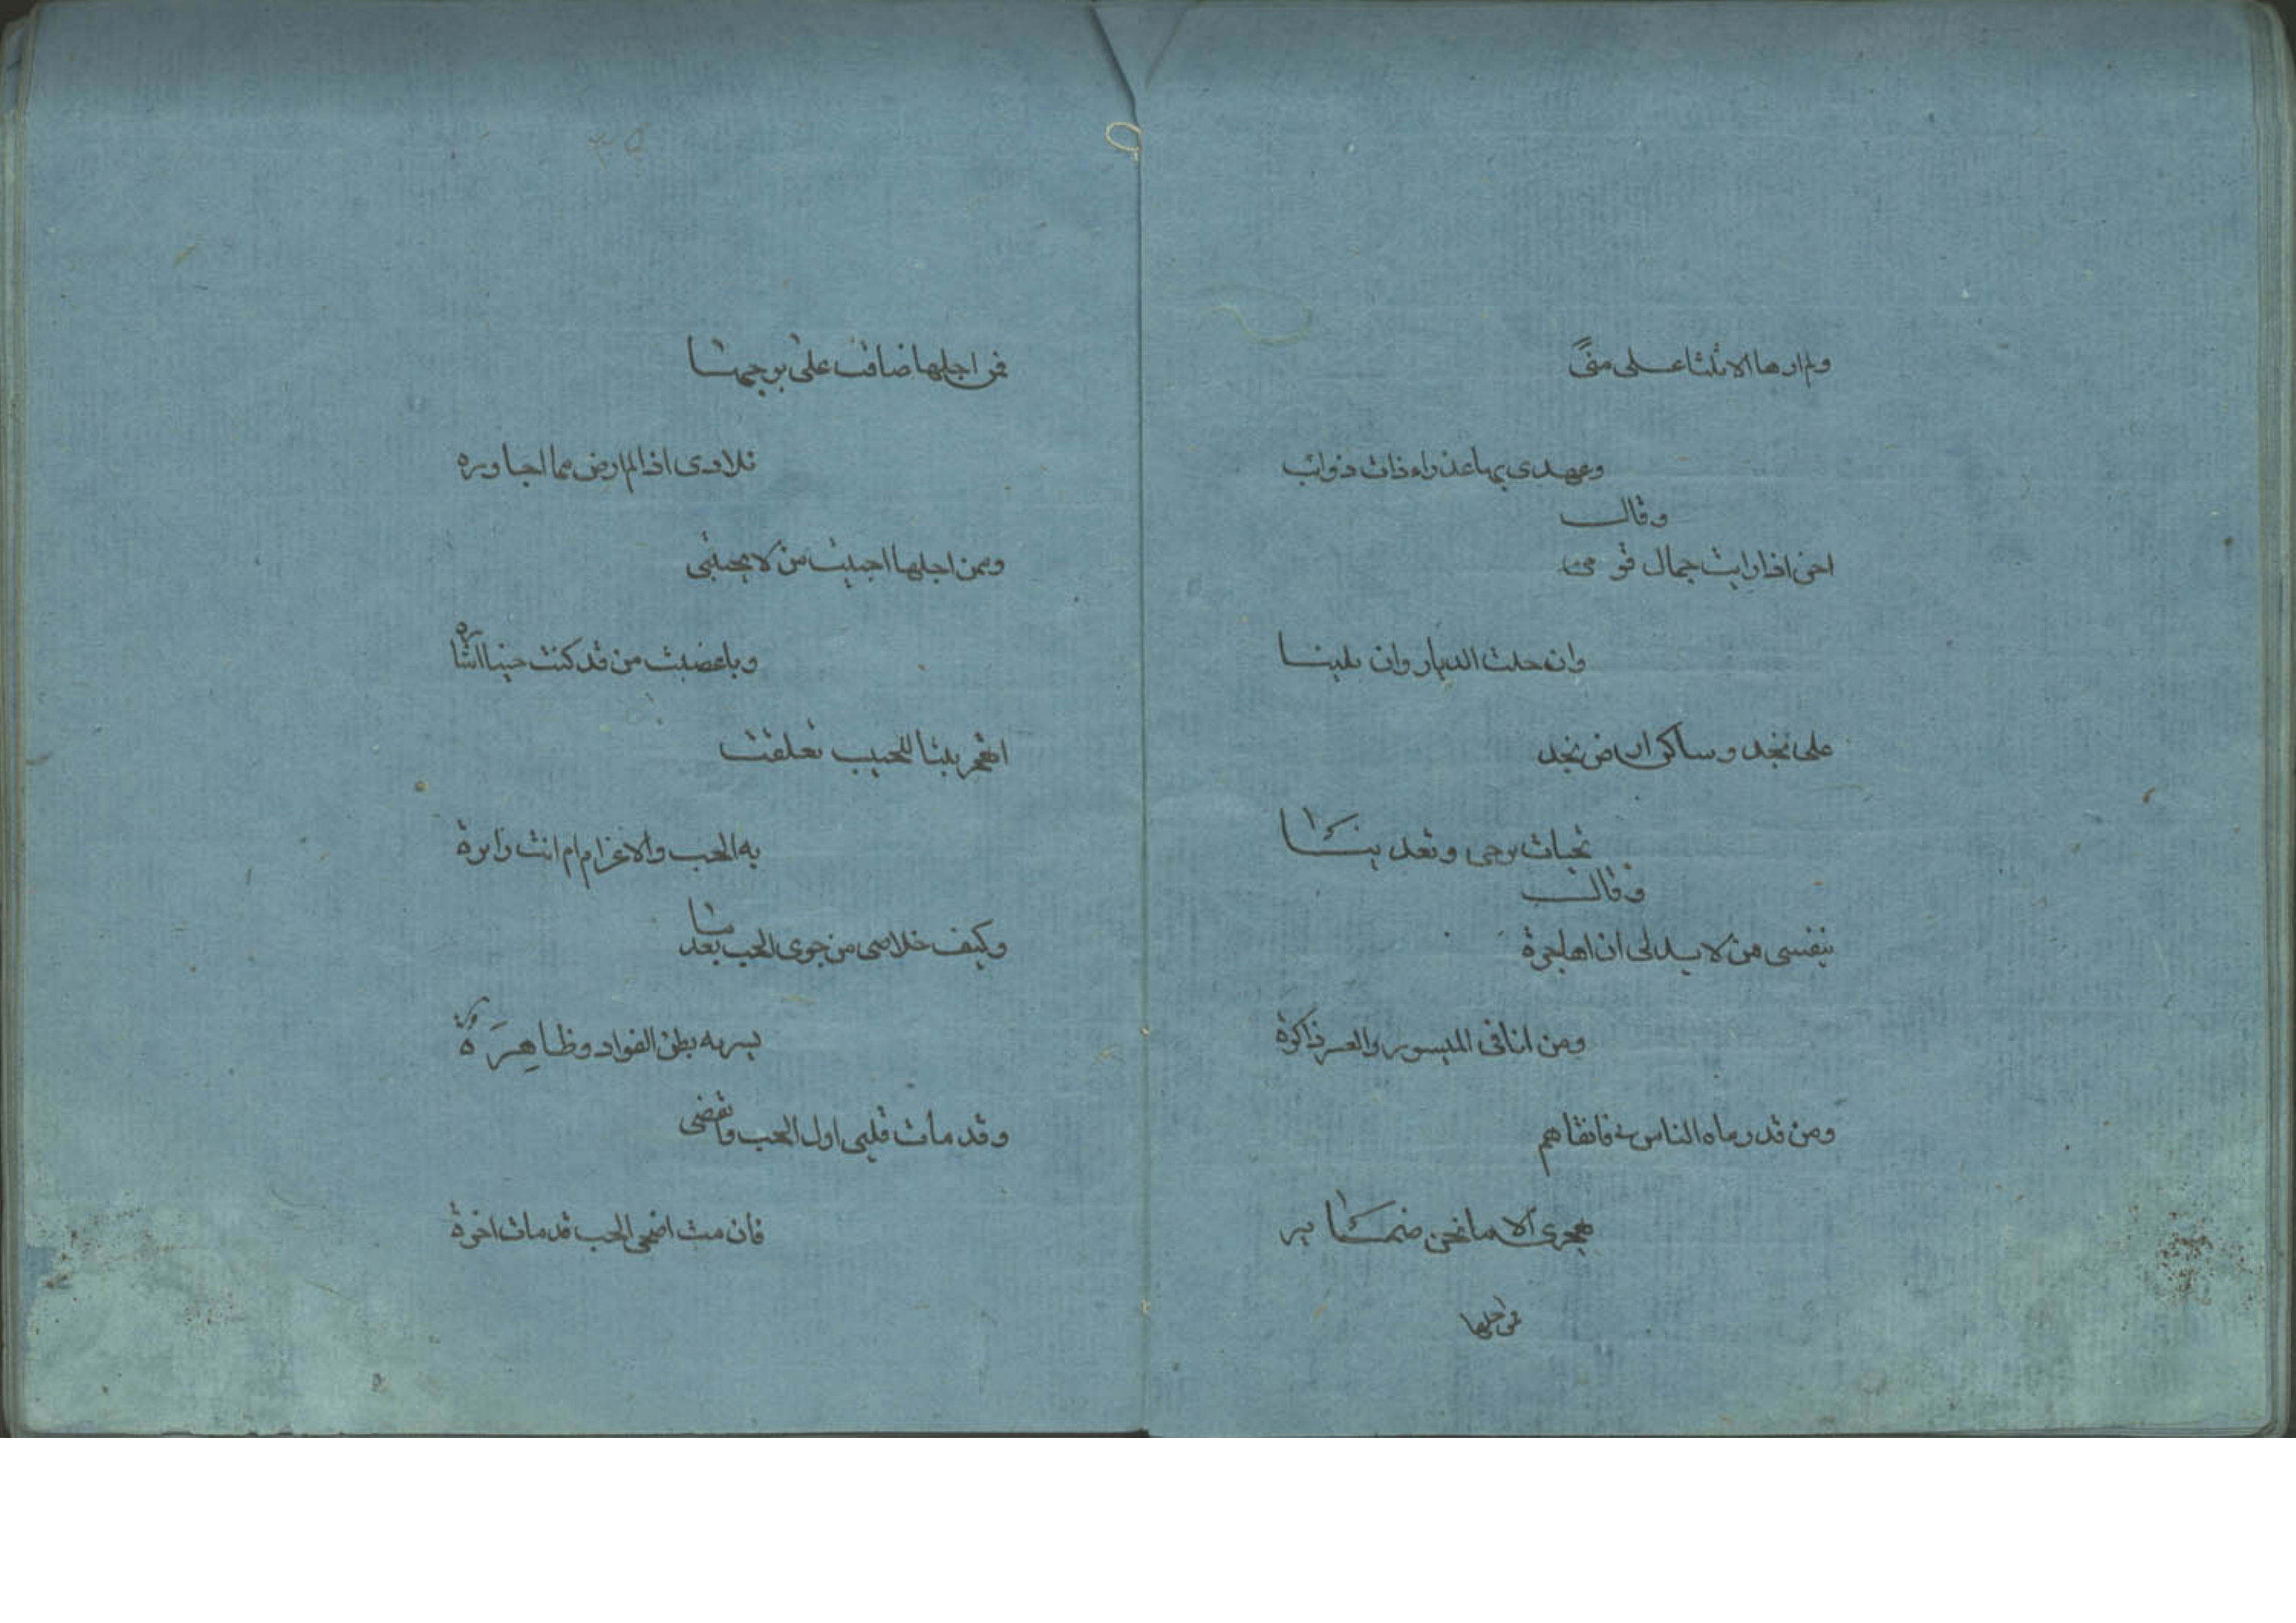 ولم ارها الا ثلثا على منًى
وعهدى بها عذراء ذات ذوائب
وقال
احن اذا رايت جمال قومى
وان حلت الديار وان بلينا
على نجد وساكن ارض نجد
تحيات يرحن ويغدينا
وقال
بنفسى من لا بد لى ان اهاجره
ومن انا فى الميسور والعسر ذاكره
ومن قد رماه الناس فاتقاهم
بهجرى الا ما تجن ضمائر
فمن اجلها
فمن اجلها ضاقت على برحبها
بلادى اذا لم ارض مما اجاوره
ومن اجلها احببت من لا يحبنى
وباغضت من قد كنت حينا اشاره
اتهجر بيتا للحبيب تعلقت
به الحب والاعزام ام انت زائره
وكيف خلاصى من جوى الحب بعدما
يسر به بطن الفواد وظاهِرَه
وقد مات قلبى اول الحب وانقضى
فان مت اضحى الحب قد مات اخره